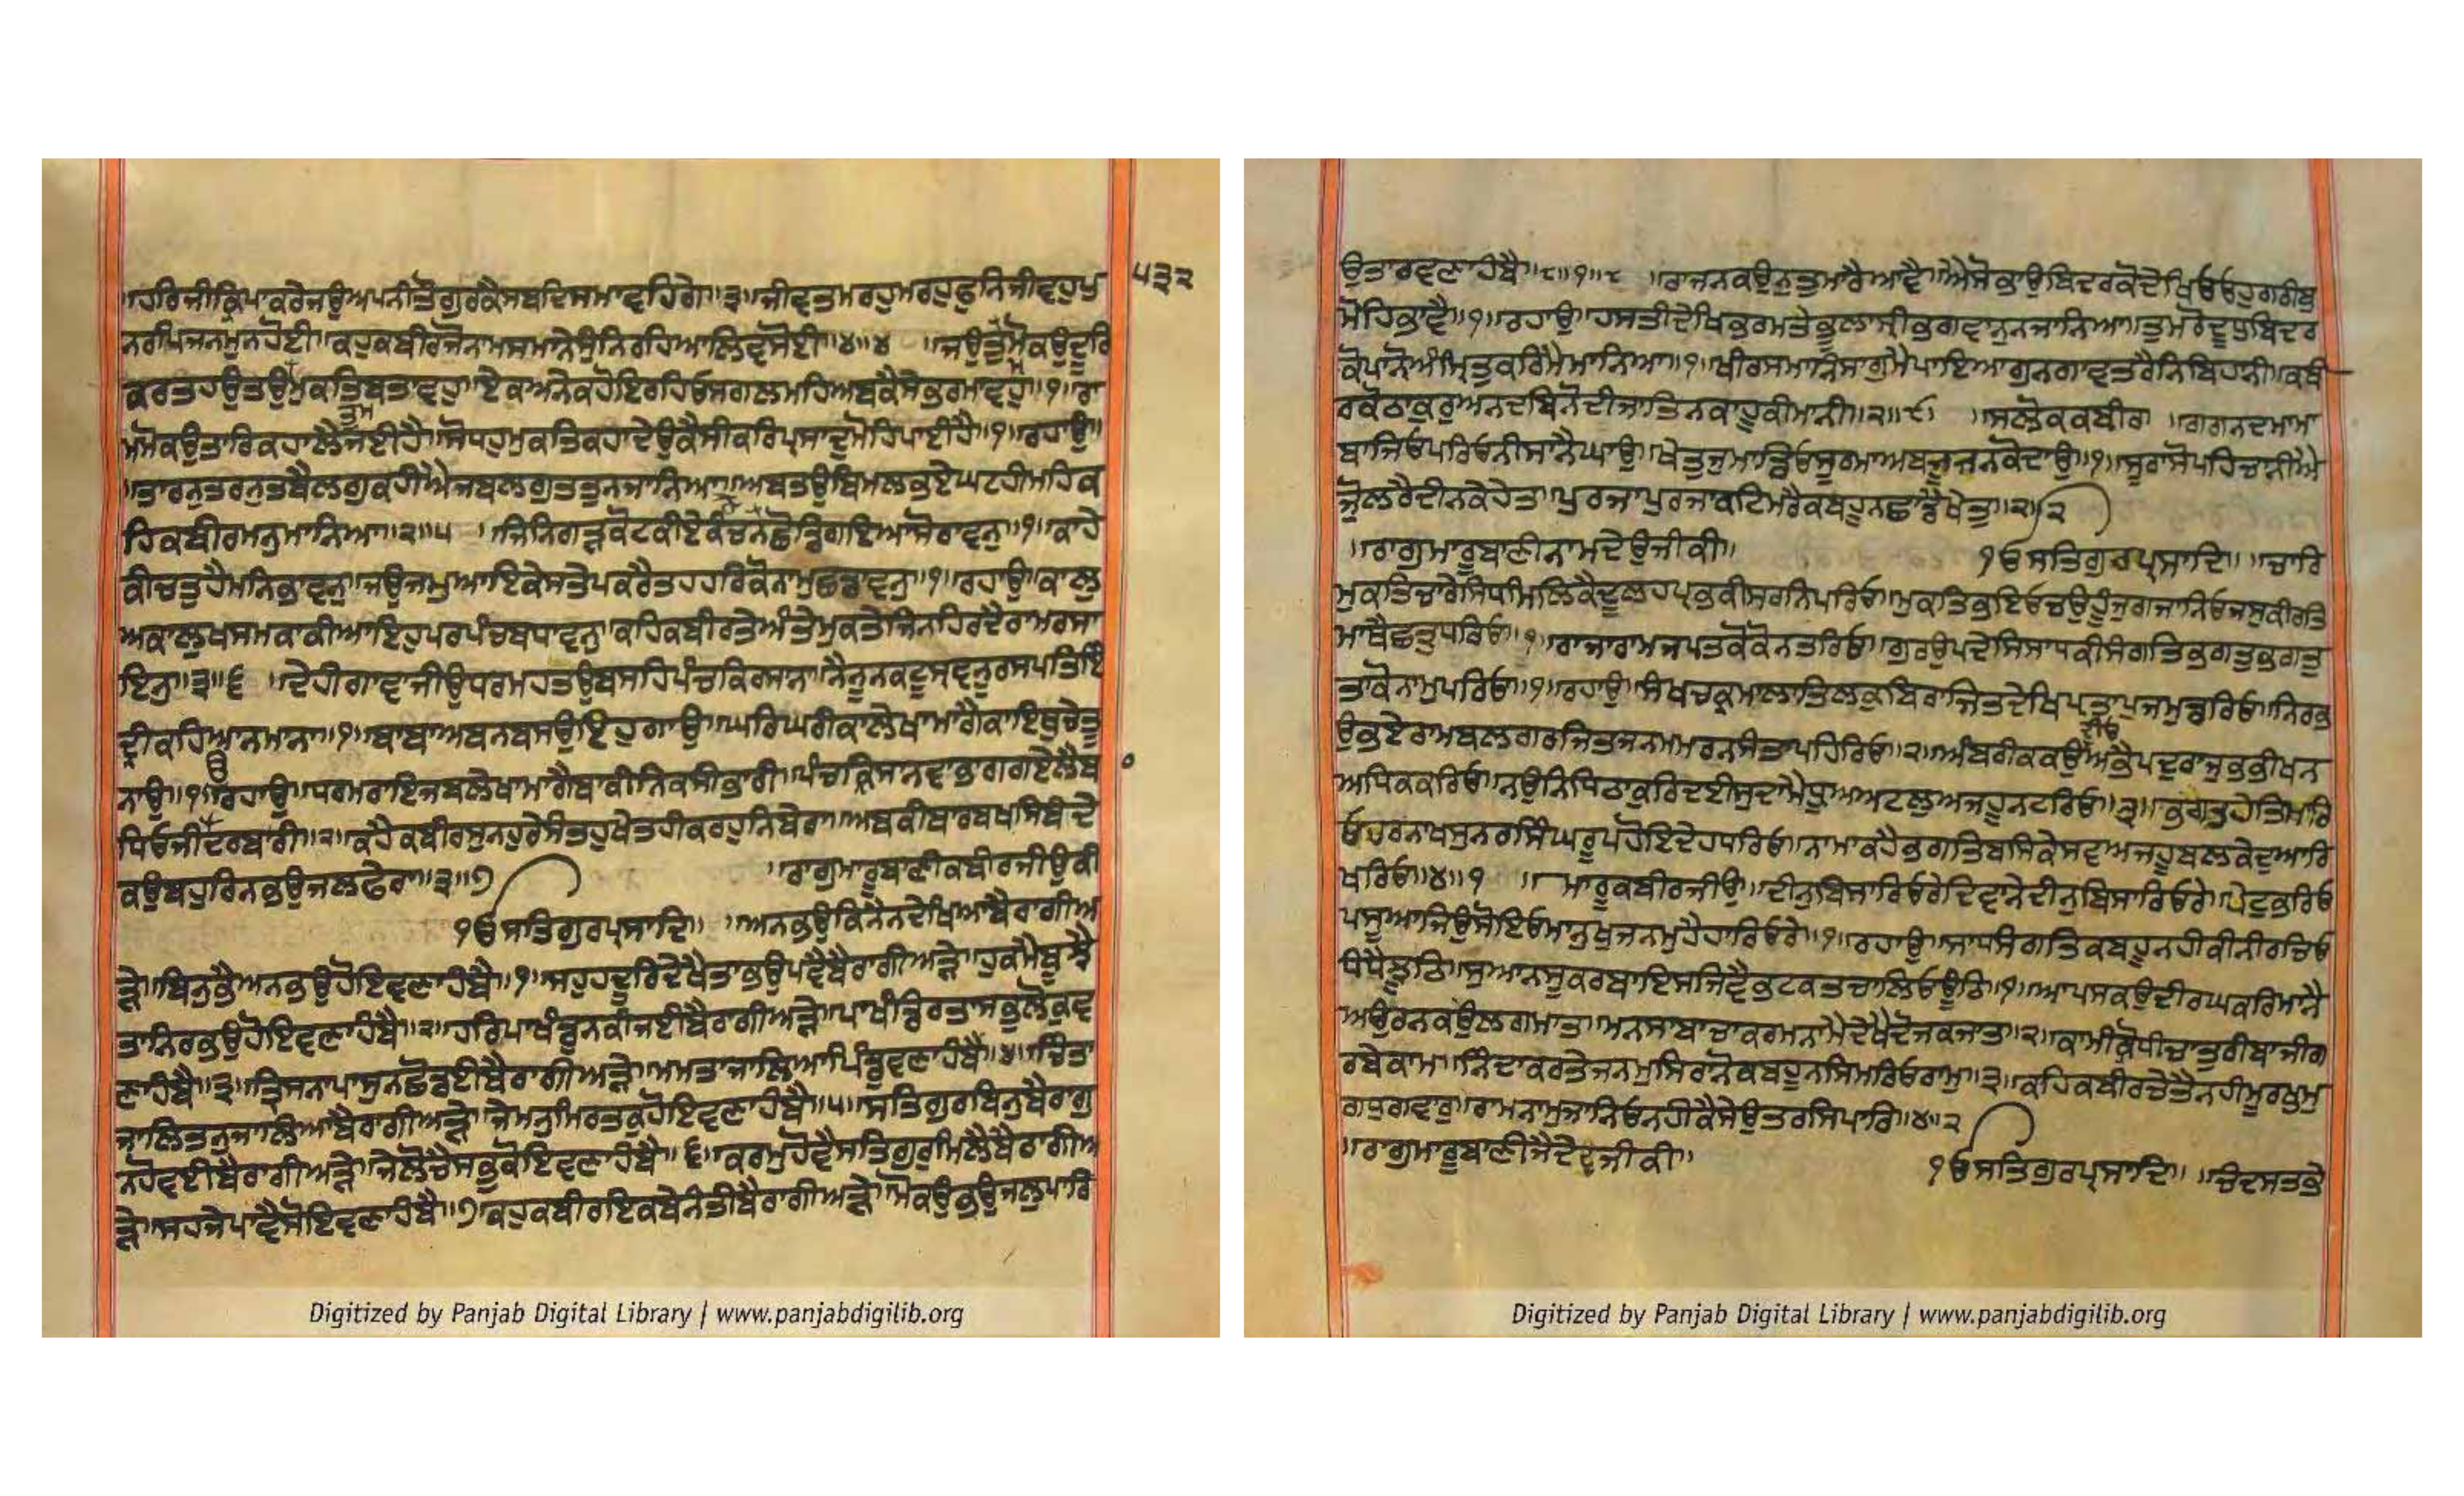 ॥ਹਰਿਜੀਕ੍ਰਿਪਾਕਰੇਜਉਅਪਨੀਤੌਗੁਰਕੈਸਬਦਿਸਮਾਵਹਿਗੇ॥੩॥ਜੀਵਤਮਰਹੁਮਰਹੁਫੁਨਿਜੀਵਹੁਪੁ
੫੩੨
ਨਰਪਿਜਨਮੁਨਹੋਈ॥ਕਹੁਕਬੀਰਜੋਨਾਮਸਮਾਨੇਸੁੰਨਿਰਹਿਆਲਿਵਸੋਈ॥੪॥੪ ॥ਜਉਤੁਮੋਕਉਦੂਰਿ
ਕਰਤਹਉਤਉਮੁਕਤਿਬਤਾਵਹੁ॥ਏਕਅਨੇਕਹੋਇਰਹਿਓਸਗਲਮਹਿਅਬਕੈਸੇਭਰਮਾਵਹੁ॥੧॥ਰਾ
ਤੁਮ
ਮਮੋਕਉਤਾਰਿਕਹਾਲੈਜਈਹੈ॥ਸੋਧਹੁਮੁਕਤਿਕਹਾਦੇਉਕੈਸੀਕਰਿਪ੍ਰਸਾਦੁਮੋਹਿਪਾਈਹੈ॥੧॥ਰਹਾਉ॥
॥ਤਾਰਨਤਰਨੁਤਬੈਲਗੁਕਹੀਐਜਬਲਗੁਤਤੁਨਜਾਨਿਆ॥ਅਬਤਉਬਿਮਲਭਏਘਟਹੀਮਹਿਕ
ਹਿਕਬੀਰਮਨੁਮਾਨਿਆ॥੨॥੫ ॥ਜਿਨਿਗੜਕੋਟਕੀਏਕੰਚਨਛੋਡਿਗਇਆਸੋਰਾਵਨੁ॥੧॥ਕਾਹੇ
ਕੀਚਤੁਹੈਮਨਿਭਾਵਨੁ॥ਜਉਜਮੁਆਇਕੇਸਤੇਪਕਰੈਤਹਹਰਿਕੋਨਾਮੁਛਡਾਵਨੁ॥੧॥ਰਹਾਉ॥ਕਾਲੁ
ਅਕਾਲੁਖਸਮਕਾਕੀਆਇਹੁਪਰਪੰਚਬਧਾਵਨੁ॥ਕਹਿਕਬੀਰਤੇਅੰਤੇਮੁਕਤੇਜਿਨਹਿਰਦੈਰਾਮਰਸਾ
ਇਨੁ॥੩॥੬ ॥ਦੇਹੀਗਾਵਾਜੀਉਧਰਮਹਤਉਬਸਹਿਪੰਚਕਿਰਸਾਨਾ॥ਨੈਨੂਨਕਟੂਸ੍ਰਵਨੂਰਸਪਤਿਇੰ
ਦ੍ਰੀਕਹਿਆਨਮਾਨਾ॥੧॥ਬਾਬਾਅਬਨਬਸਉਇਹਗਾਉ॥ਘਰਿਘਰੀਕਾਲੇਖਾਮਾਗੈਕਾਇਥੁਚੇਤੂ
ਨਾਉ॥੧॥ਰਹਾਉ॥ਧਰਮਰਾਇਜਬਲੇਖਾਮਾਗੈਬਾਕੀਨਿਕਸੀਭਾਰੀ॥ਪੰਚਕ੍ਰਿਸਾਨਵਾਭਾਗਗਏਲੈਬ
ਧਿਓਜੀਦਰਬਾਰੀ॥੨॥ਕਹੈਕਬੀਰਸੁਨਹੁਰੇਸੰਤਹੁਖੇਤਹੀਕਰਹੁਨਿਬੇਰਾ॥ਅਬਕੀਬਾਰਬਖਸਿਬੰਦੇ
ਕਉਬਹੁਰਿਨਭਉਜਲਫੇਰਾ॥੩॥੭ ॥ਰਾਗੁਮਾਰੂਬਾਣੀਕਬੀਰਜੀਉਕੀ
੧ਓਸਤਿਗੁਰਪ੍ਰਸਾਦਿ॥ ॥ਅਨਭਉਕਿਨੈਨਦੇਖਿਆਬੈਰਾਗੀਅ
ੜੇ॥ਬਿਨੁਭੈਅਨਭਉਹੋਇਵਣਾਹੰਬੈ॥੧॥ਸਹੁਹਦੂਰਿਦੇਖੈਤਾਭਉਪਵੈਬੈਰਾਗੀਅੜੇ॥ਹੁਕਮੈਬੂਝੈ
ਤਾਨਿਰਭਉਹੋਇਵਣਾਹੰਬੈ॥੨॥ਹਰਿਪਾਖੰਡੁਨਕੀਜਈਬੈਰਾਗੀਅੜੇ॥ਪਾਖੰਡਿਰਤਾਸਭੁਲੋਕੁਵ
ਣਾਹੰਬੈ॥੩॥ਤ੍ਰਿਸਨਾਪਾਸੁਨਛੋਡਈਬੈਰਾਗੀਅੜੇ॥ਮਮਤਾਜਾਲਿਆਪਿੰਡੁਵਣਾਹੰਬੈ॥੪॥ਚਿੰਤਾ
ਜਾਲਿਤਨੁਜਾਲਿਆਬੈਰਾਗੀਅੜੇ॥ਜੇਮਨੁਮਿਰਤਕੁਹੋਇਵਣਾਹੰਬੈ॥੫॥ਸਤਿਗੁਰਬਿਨੁਬੈਰਾਗੁ
ਨਹੋਵਈਬੈਰਾਗੀਅੜੇ॥ਜੇਲੋਚੈਸਭੁਕੋਇਵਣਾਹੰਬੈ॥੬॥ਕਰਮੁਹੋਵੈਸਤਿਗੁਰੁਮਿਲੈਬੈਰਾਗੀਅ
ੜੇ॥ਸਹਜੇਪਾਵੈਸੋਇਵਣਾਹੰਬੈ॥੭॥ਕਹੁਕਬੀਰਇਕਬੇਨੰਤੀਬੈਰਾਗੀਅੜੇ॥ਮੋਕਉਭਉਜਲੁਪਾਰਿ
Digitized by Panjab Digital Library | www.panjabdigilib.org
ਉਤਾਰਵਣਾਹੰਬੈ॥੮॥੧॥੮ ॥ਰਾਜਨਕਉਨੁਤੁਮਾਰੈਆਵੈ॥ਐਸੋਭਾਉਬਿਦਰਕੋਦੇਖਿਓਓਹੁਗਰੀਬੁ
ਮੋਹਿਭਾਵੈ॥੧॥ਰਹਾਉ॥ਹਸਤੀਦੇਖਿਭਰਮਤੇਭੂਲਾਸ੍ਰੀਭਗਵਾਨੁਨਜਾਨਿਆ॥ਤੁਮਰੋਦੂਧੁਬਿਦਰ
ਕੋਪਾਨੋਅੰਮ੍ਰਿਤੁਕਰਿਮੈਮਾਨਿਆ॥੧॥ਖੀਰਸਮਾਨਿਸਾਗੁਮੈਪਾਇਆਗੁਨਗਾਵਤਰੈਨਿਬਿਹਾਨੀ॥ਕਬੀ
ਰਕੋਠਾਕੁਰੁਅਨਦਬਿਨੋਦੀਜਾਤਿਨਕਾਹੂਕੀਮਾਨੀ॥੨॥੯ ॥ਸਲੋਕਕਬੀਰ ॥ਗਗਨਦਮਾਮਾ
ਬਾਜਿਓਪਰਿਓਨੀਸਾਨੈਘਾਉ॥ਖੇਤੁਜੁਮਾਂਡਿਓਸੂਰਮਾਅਬਜੂਝਨਕੋਦਾਉ॥੧॥ਸੂਰਾਸੋਪਹਿਚਾਨੀਐ
ਜੁਲਰੈਦੀਨਕੇਹੇਤ॥ਪੁਰਜਾਪੁਰਜਾਕਟਿਮਰੈਕਬਹੂਨਛਾਡੈਖੇਤੁ॥੨॥੨
॥ਰਾਗੁਮਾਰੂਬਾਣੀਨਾਮਦੇਉਜੀਕੀ॥ ੧ਓਸਤਿਗੁਰਪ੍ਰਸਾਦਿ॥ ॥ਚਾਰਿ
ਮੁਕਤਿਚਾਰੈਸਿਧਿਮਿਲਿਕੈਦੂਲਹਪ੍ਰਭਕੀਸਰਨਿਪਰਿਓ॥ਮੁਕਤਿਭਇਓਚਉਹੂੰਜੁਗਜਾਨਿਓਜਸੁਕੀਰਤਿ
ਮਾਥੈਛਤ੍ਰਧਰਿਓ॥੧॥ਰਾਜਾਰਾਮਜਪਤਕੋਕੋਨਤਰਿਓ॥ਗੁਰਉਪਦੇਸਿਸਾਧਕੀਸੰਗਤਿਭਗਤੁਭਗਤੁ
ਤਾਕੋਨਾਮੁਪਰਿਓ॥੧॥ਰਹਾਉ॥ਸੰਖਚਕ੍ਰਮਾਲਾਤਿਲਕੁਬਿਰਾਜਿਤਦੇਖਿਪ੍ਰਤਾਪੁਜਮੁਡਰਿਓ॥ਨਿਰਭ
ਉਭਏਰਾਮਬਲਗਰਜਿਤਜਨਮਮਰਨਸੰਤਾਪਹਿਰਿਓ॥੨॥ਅੰਬਰੀਕਕਉਅਭੈਪਦੁਰਾਜੁਭਭੀਖਨ
ਦੀਓ
ਅਧਿਕਕਰਿਓ॥ਨਉਨਿਧਿਠਾਕੁਰਿਦਈਸੁਦਾਮੈਧ੍ਰੂਅਅਟਲੁਅਜਹੂਨਟਰਿਓ॥੩॥ਭਗਤੁਹੇਤਿਮਾਰਿ
ਓਹਰਨਾਖਸੁਨਰਸਿੰਘਰੂਪਹੋਇਦੇਹਧਰਿਓ॥ਨਾਮਾਕਹੈਭਗਤਿਬਸਿਕੇਸਵਅਜਹੂਬਲਕੇਦੁਆਰਿ
ਖਰਿਓ॥੪॥੧ ॥ਮਾਰੂਕਬੀਰਜੀਉ॥ਦੀਨੁਬਿਸਾਰਿਓਰੇਦਿਵਾਨੇਦੀਨੁਬਿਸਾਰਿਓਰੇ॥ਪੇਟੁਭਰਿਓ
ਪਸੂਆਜਿਉਸੋਇਓਮਾਨੁਖੁਜਨਮੁਹੈਹਾਰਿਓਰੇ॥੧॥ਰਹਾਉ॥ਸਾਧਸੰਗਤਿਕਬਹੂਨਹੀਕੀਨੀਰਚਿਓ
ਧੰਧੈਝੂਠਿ॥ਸੁਆਨਸੂਕਰਬਾਇਸਜਿਵੈਭਟਕਤਚਾਲਿਓਊਠਿ॥੧॥ਆਪਸਕਉਦੀਰਘਕਰਿਮਾਨੈ
ਅਉਰਨਕਉਲਗਮਾਤ॥ਮਨਸਾਬਾਚਾਕਰਮਨਾਮੈਦੇਖੇਦੋਜਕਜਾਤ॥੨॥ਕਾਮੀਕ੍ਰੋਧੀਚਾਤੁਰੀਬਾਜੀਗ
ਰਬੇਕਾਮ॥ਨਿੰਦਾਕਰਤੇਜਨਮੁਸਿਰਾਨੋਕਬਹੂਨਸਿਮਰਿਓਰਾਮੁ॥੩॥ਕਹਿਕਬੀਰਚੇਤੈਨਹੀਮੂਰਖੁਮੁ
ਗਧੁਗਵਾਰੁ॥ਰਾਮਨਾਮੁਜਾਨਿਓਨਹੀਕੈਸੇਉਤਰਸਿਪਾਰਿ॥੪॥੨
॥ਰਾਗੁਮਾਰੂਬਾਣੀਜੈਦੇਵਜੀਕੀ॥ ੧ਓਸਤਿਗੁਰਪ੍ਰਸਾਦਿ॥ ॥ਚੰਦਸਤਭੇ
Digitized by Panjab Digital Library | www.panjabdigilib.org